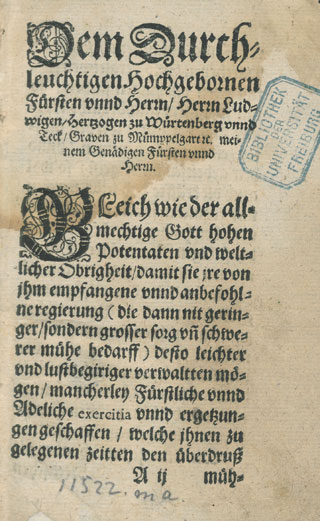 Dem Durch-
leuchtigen Hochgebornen
Fürsten vnnd Herrn/ Herrn Lud-
wigen/ Hertzogen zu Würtenberg vnnd
Teck/ Graven zu Mümppelgart ꝛc. mei-
nem Genädigen Fürsten vnnd
Herrn.
BIBLIOTHEK
DER
UNIVERSITÄT
FREIBURG
GLeich wie der all-
mechtige Gott hohen
Potentaten vnd welt-
licher Obrigheit/ damit sie jre von
jhm empfangene vnnd anbefohl-
ne regierung ( die dann nit gerin-
ger/ sondern grosser sorg vñ schwe-
rer mühe bedarff ) desto leichter
vnd lustbegiriger verwaltten mö-
gen/ mancherley Fürstliche vnnd
Adeliche exercitia vnnd ergetzun-
gen geschaffen / welche jhnen zu
gelegenen zeitten den überdruß
A ij müh-
11522. m a.